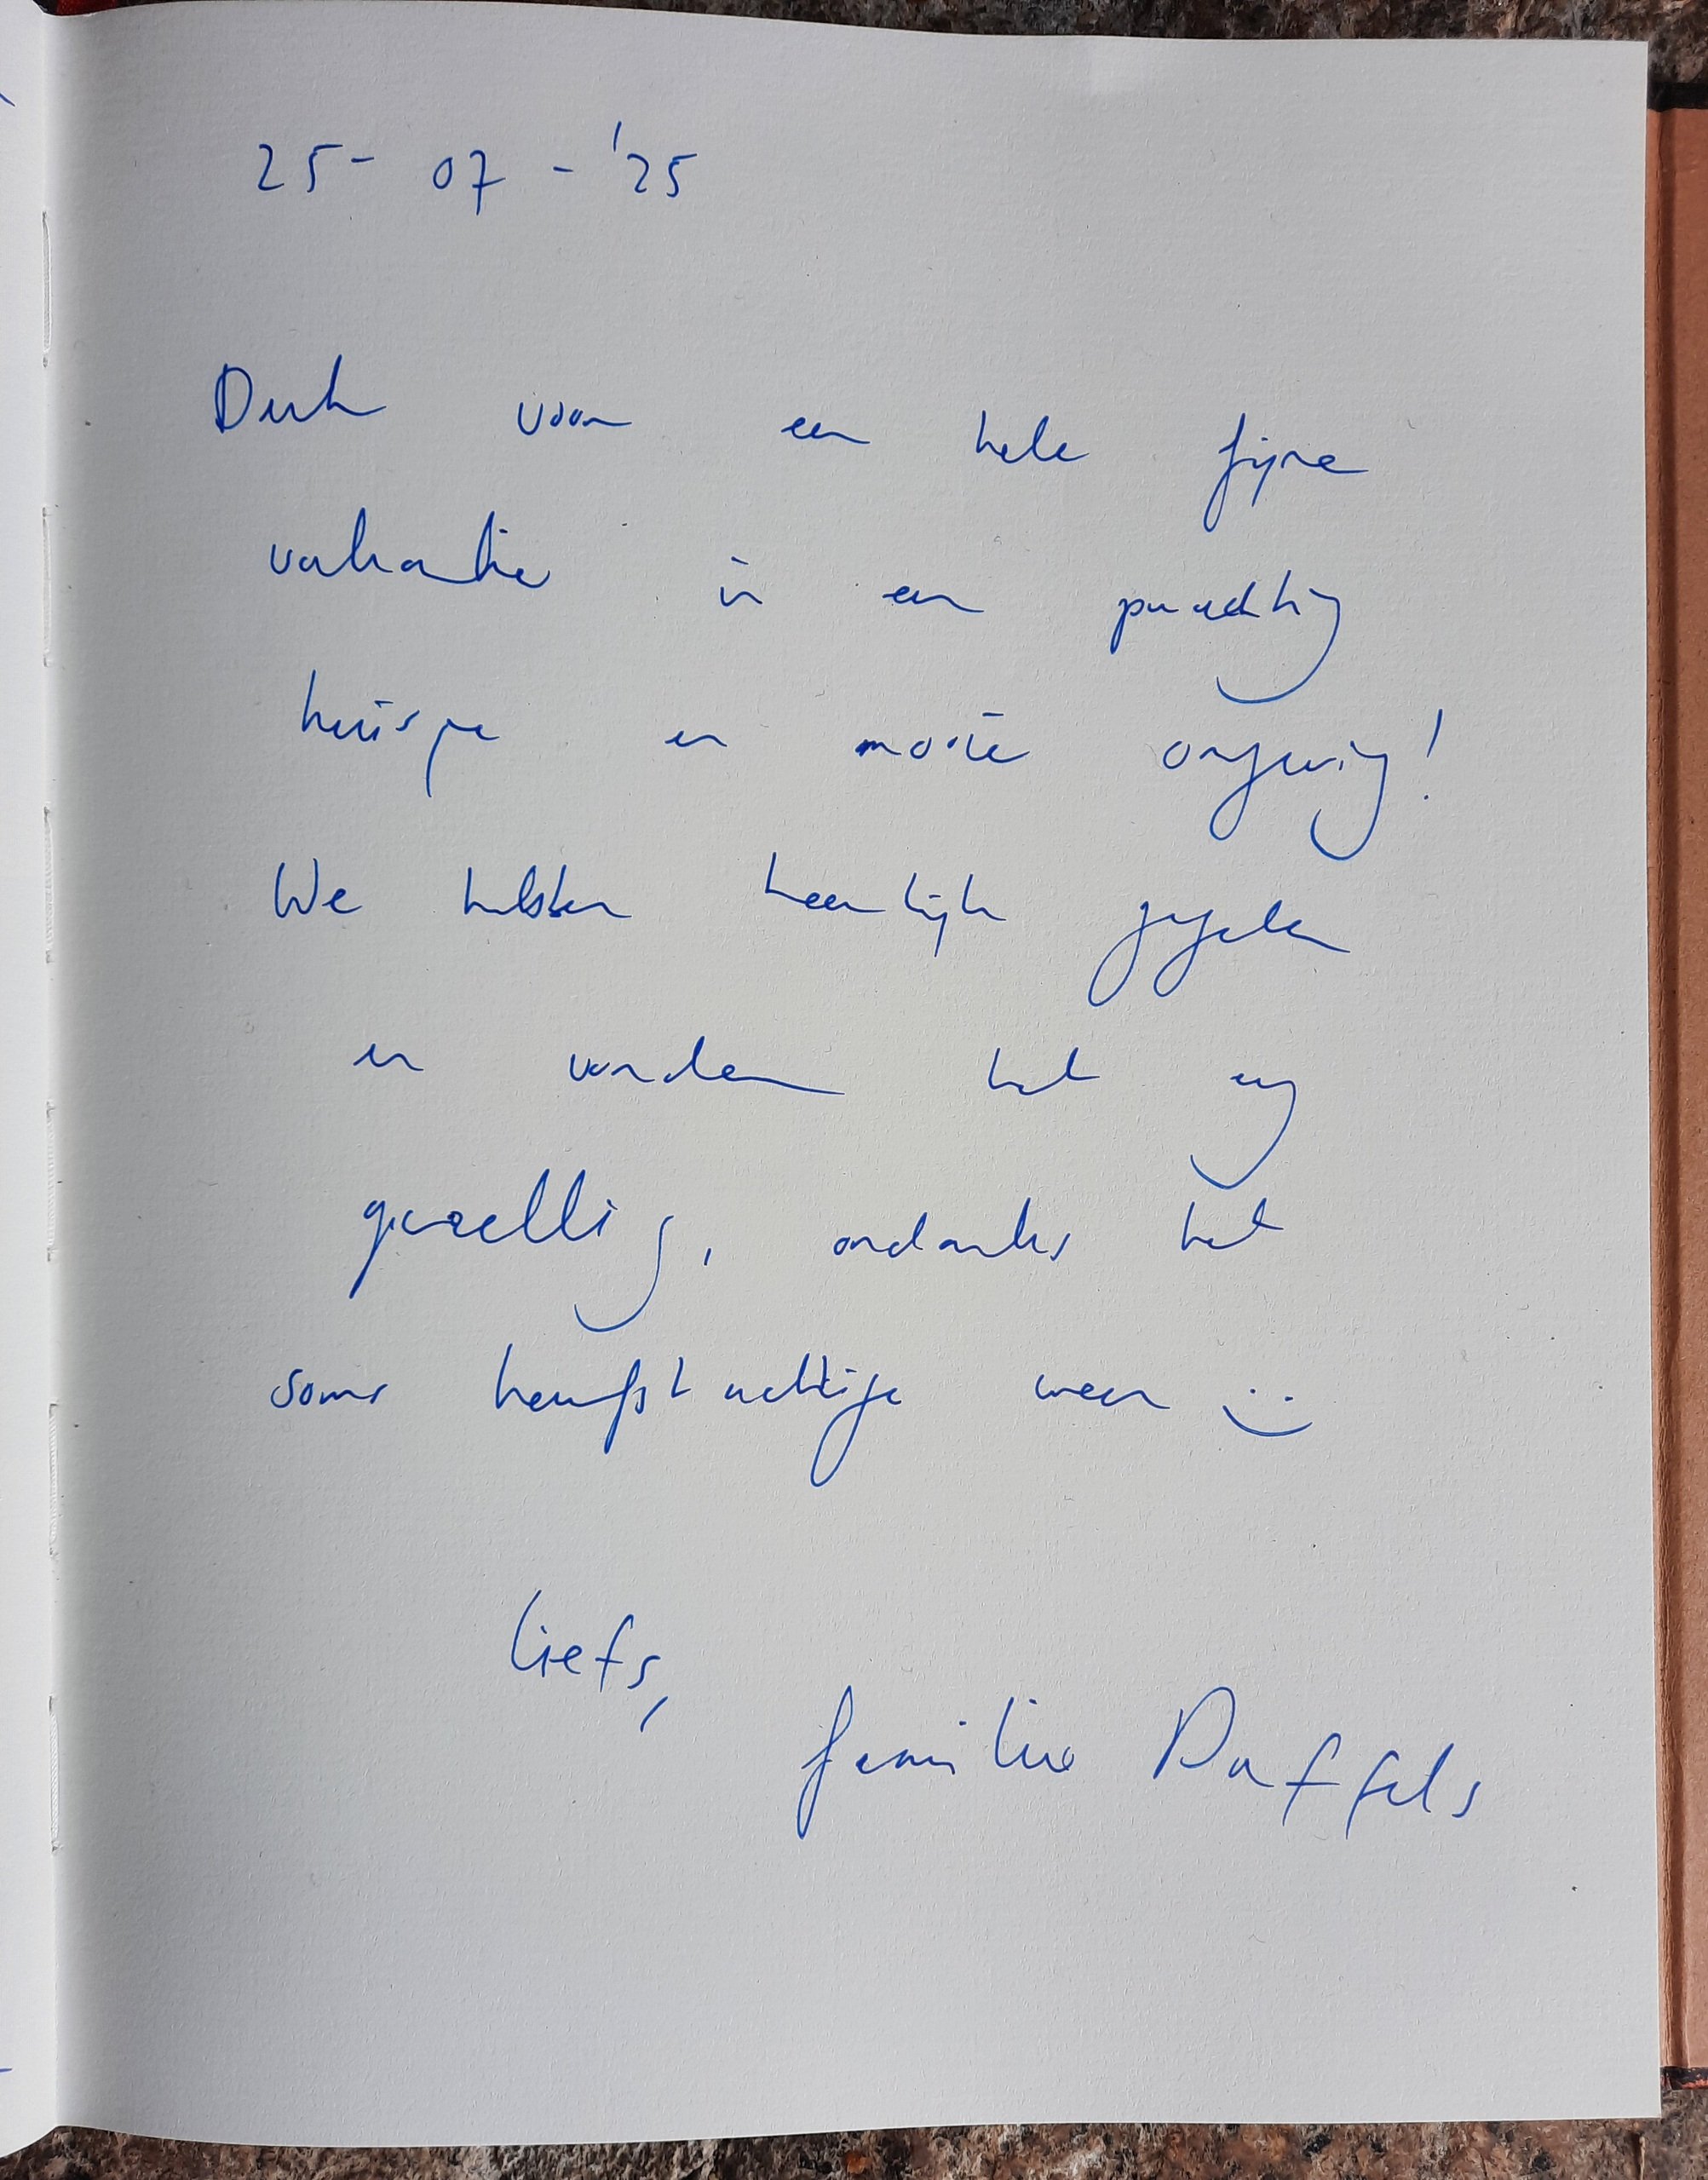 25-07-'25
Dank voor een hele fijne
vakantie in een prachtig
huisje en mooie omgeving!
We hebben heerlijk gegeten
en vonden het erg
gezellig, ondanks het
soms herfstachtige weer :)
Liefs,
familie Duffels